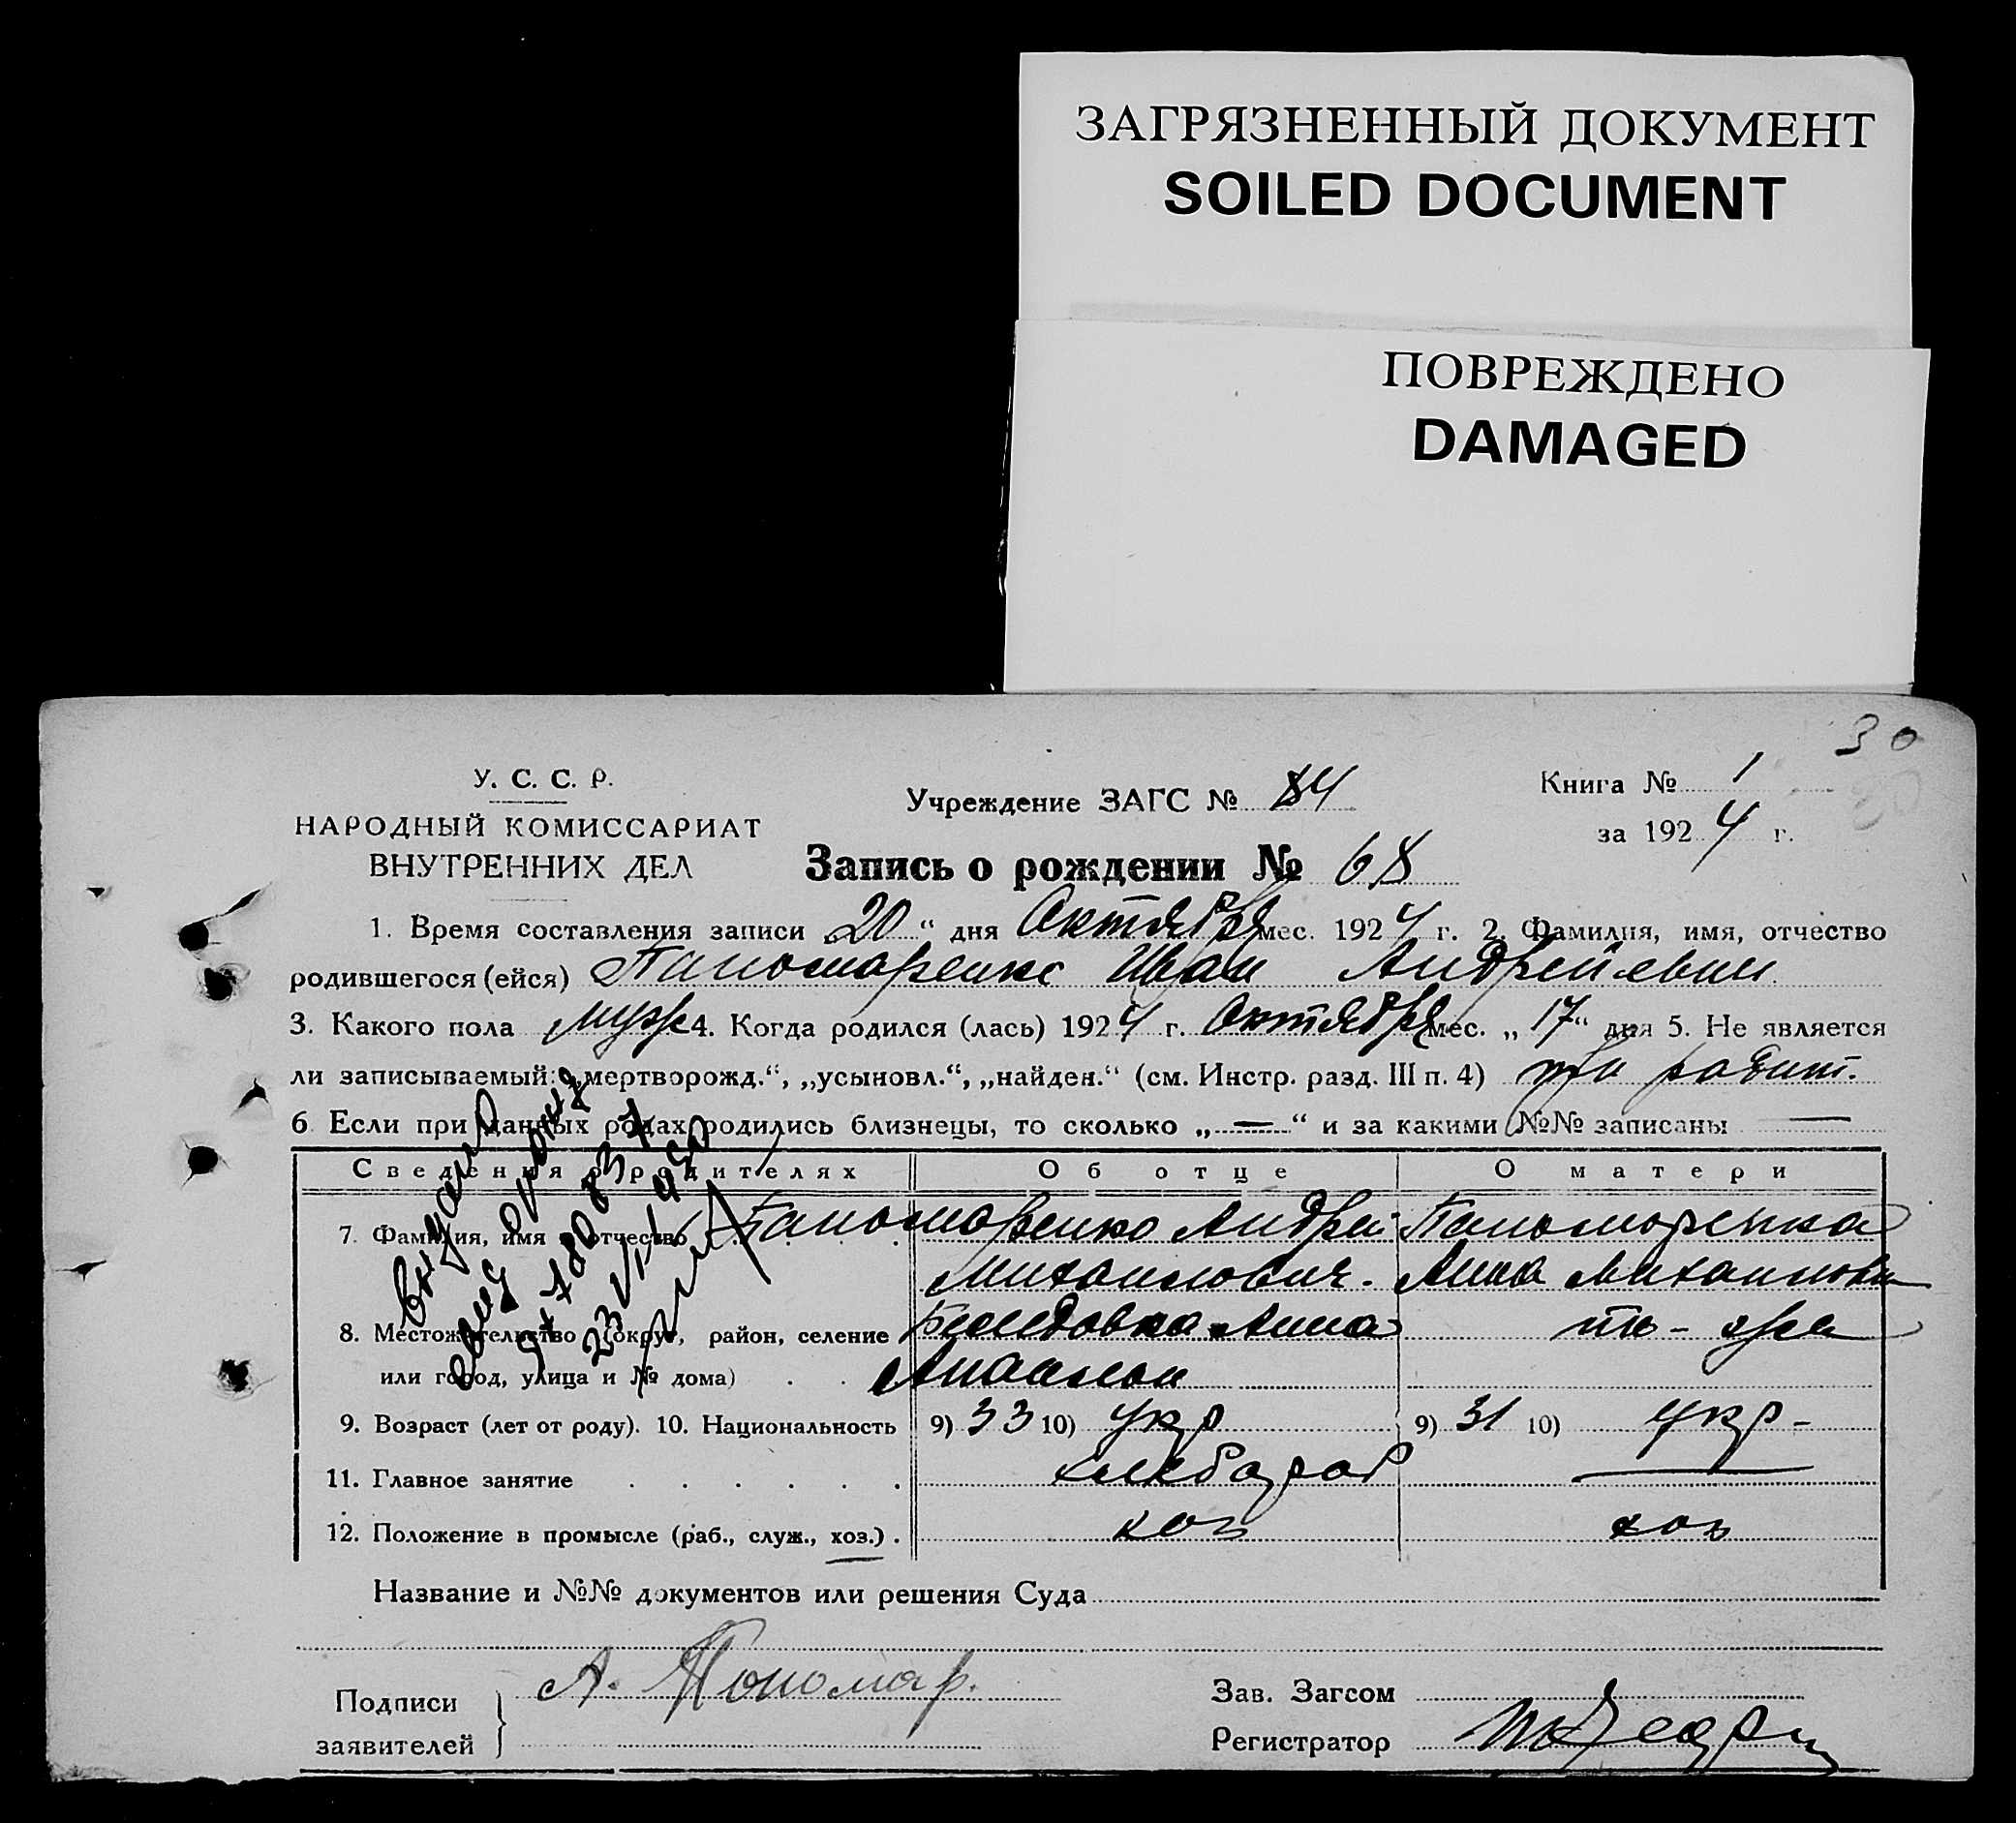 ЗАГРЯЗНЕННЫЙ ДОКУМЕНТ
SOILED DOCUMENT
ПОВРЕЖДЕНО
DAMAGED
30
У. С. С. Р.
НАРОДНЫЙ КОМИССАРИАТ
ВНУТРЕННИХ ДЕЛ
Учреждение ЗАГС № 84
Книга № 1
за 1924 г.
Запись о рождении № 68
1. Время составления записи „20“ дня Октября мес. 1924 г. 2. Фамилия, имя, отчество
родившегося (ейся) Паномаренко Иван Андрейевич
3. Какого пола муж 4. Когда родился (лась) 1924 г. Октября мес. „17“ дня 5. Не является
ли записываемый: „мертворожд.“, „усыновл.“, „найден.“ (см. Инстр. разд. III п. 4)
6 Если при данных родах родились близнецы, то сколько „—“ и за какими №№ записаны —
Сведения о родителях Об отце О матери
7. Фамилия, имя и отчество Паномаренко Андрей Паномаренка
Михаилович. Анна Михаиловн
8. Местожительство (округ, район, селение
или город, улица и № дома)
9. Возраст (лет от роду). 10. Национальность 9) 33 10) укр 9) 31 10) укр-
11. Главное занятие хлебороб —
12. Положение в промысле (раб., служ., хоз.) хоз хоз
Название и №№ документов или решения Суда
Подписи заявителей А. Пономар.
Зав. Загсом
Регистратор